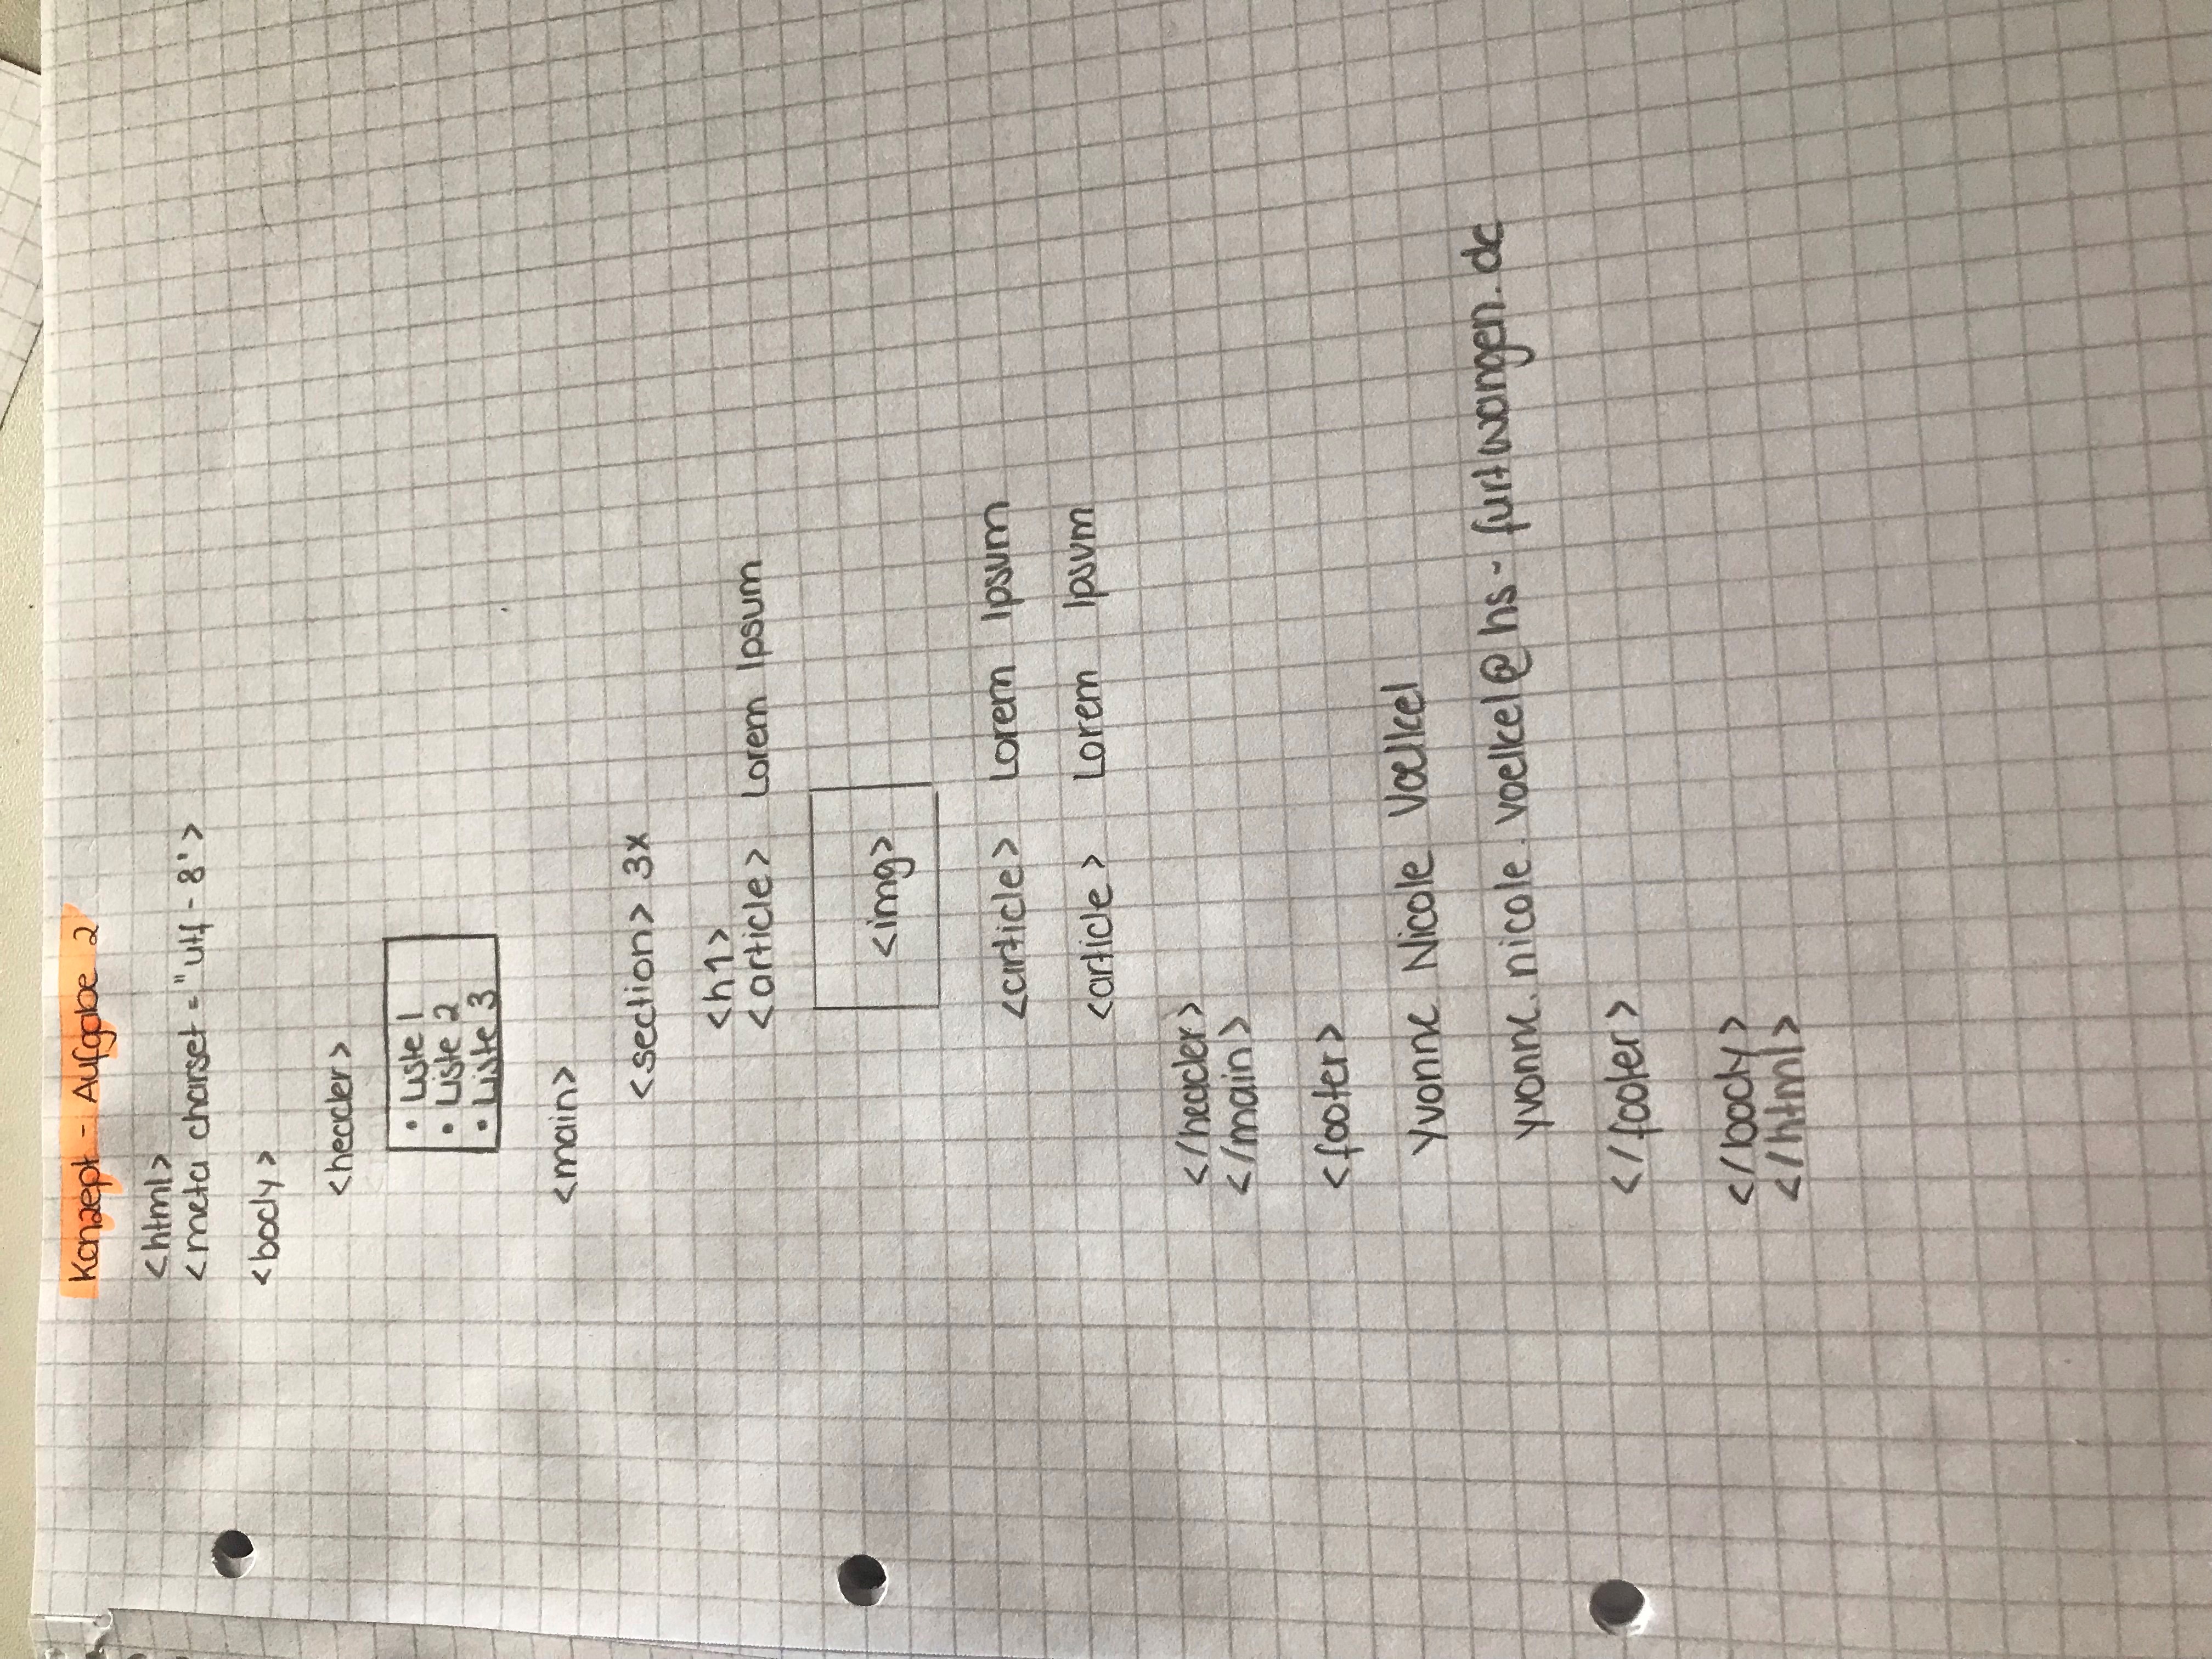 Konzept - Aufgabe 2
<html>
<meta charset = "utf - 8">
<body>
<header>
• Liste 1
• Liste 2
• Liste 3
<main>
<section> 3x
<h1>
<article> Lorem Ipsum
<img>
<article> Lorem Ipsum
<article> Lorem Ipsum
</header>
</main>
<footer>
Yvonne Nicole Voelkel
yvonne.nicole.voelkel@hs-furtwangen.de
</footer>
</body>
</html>